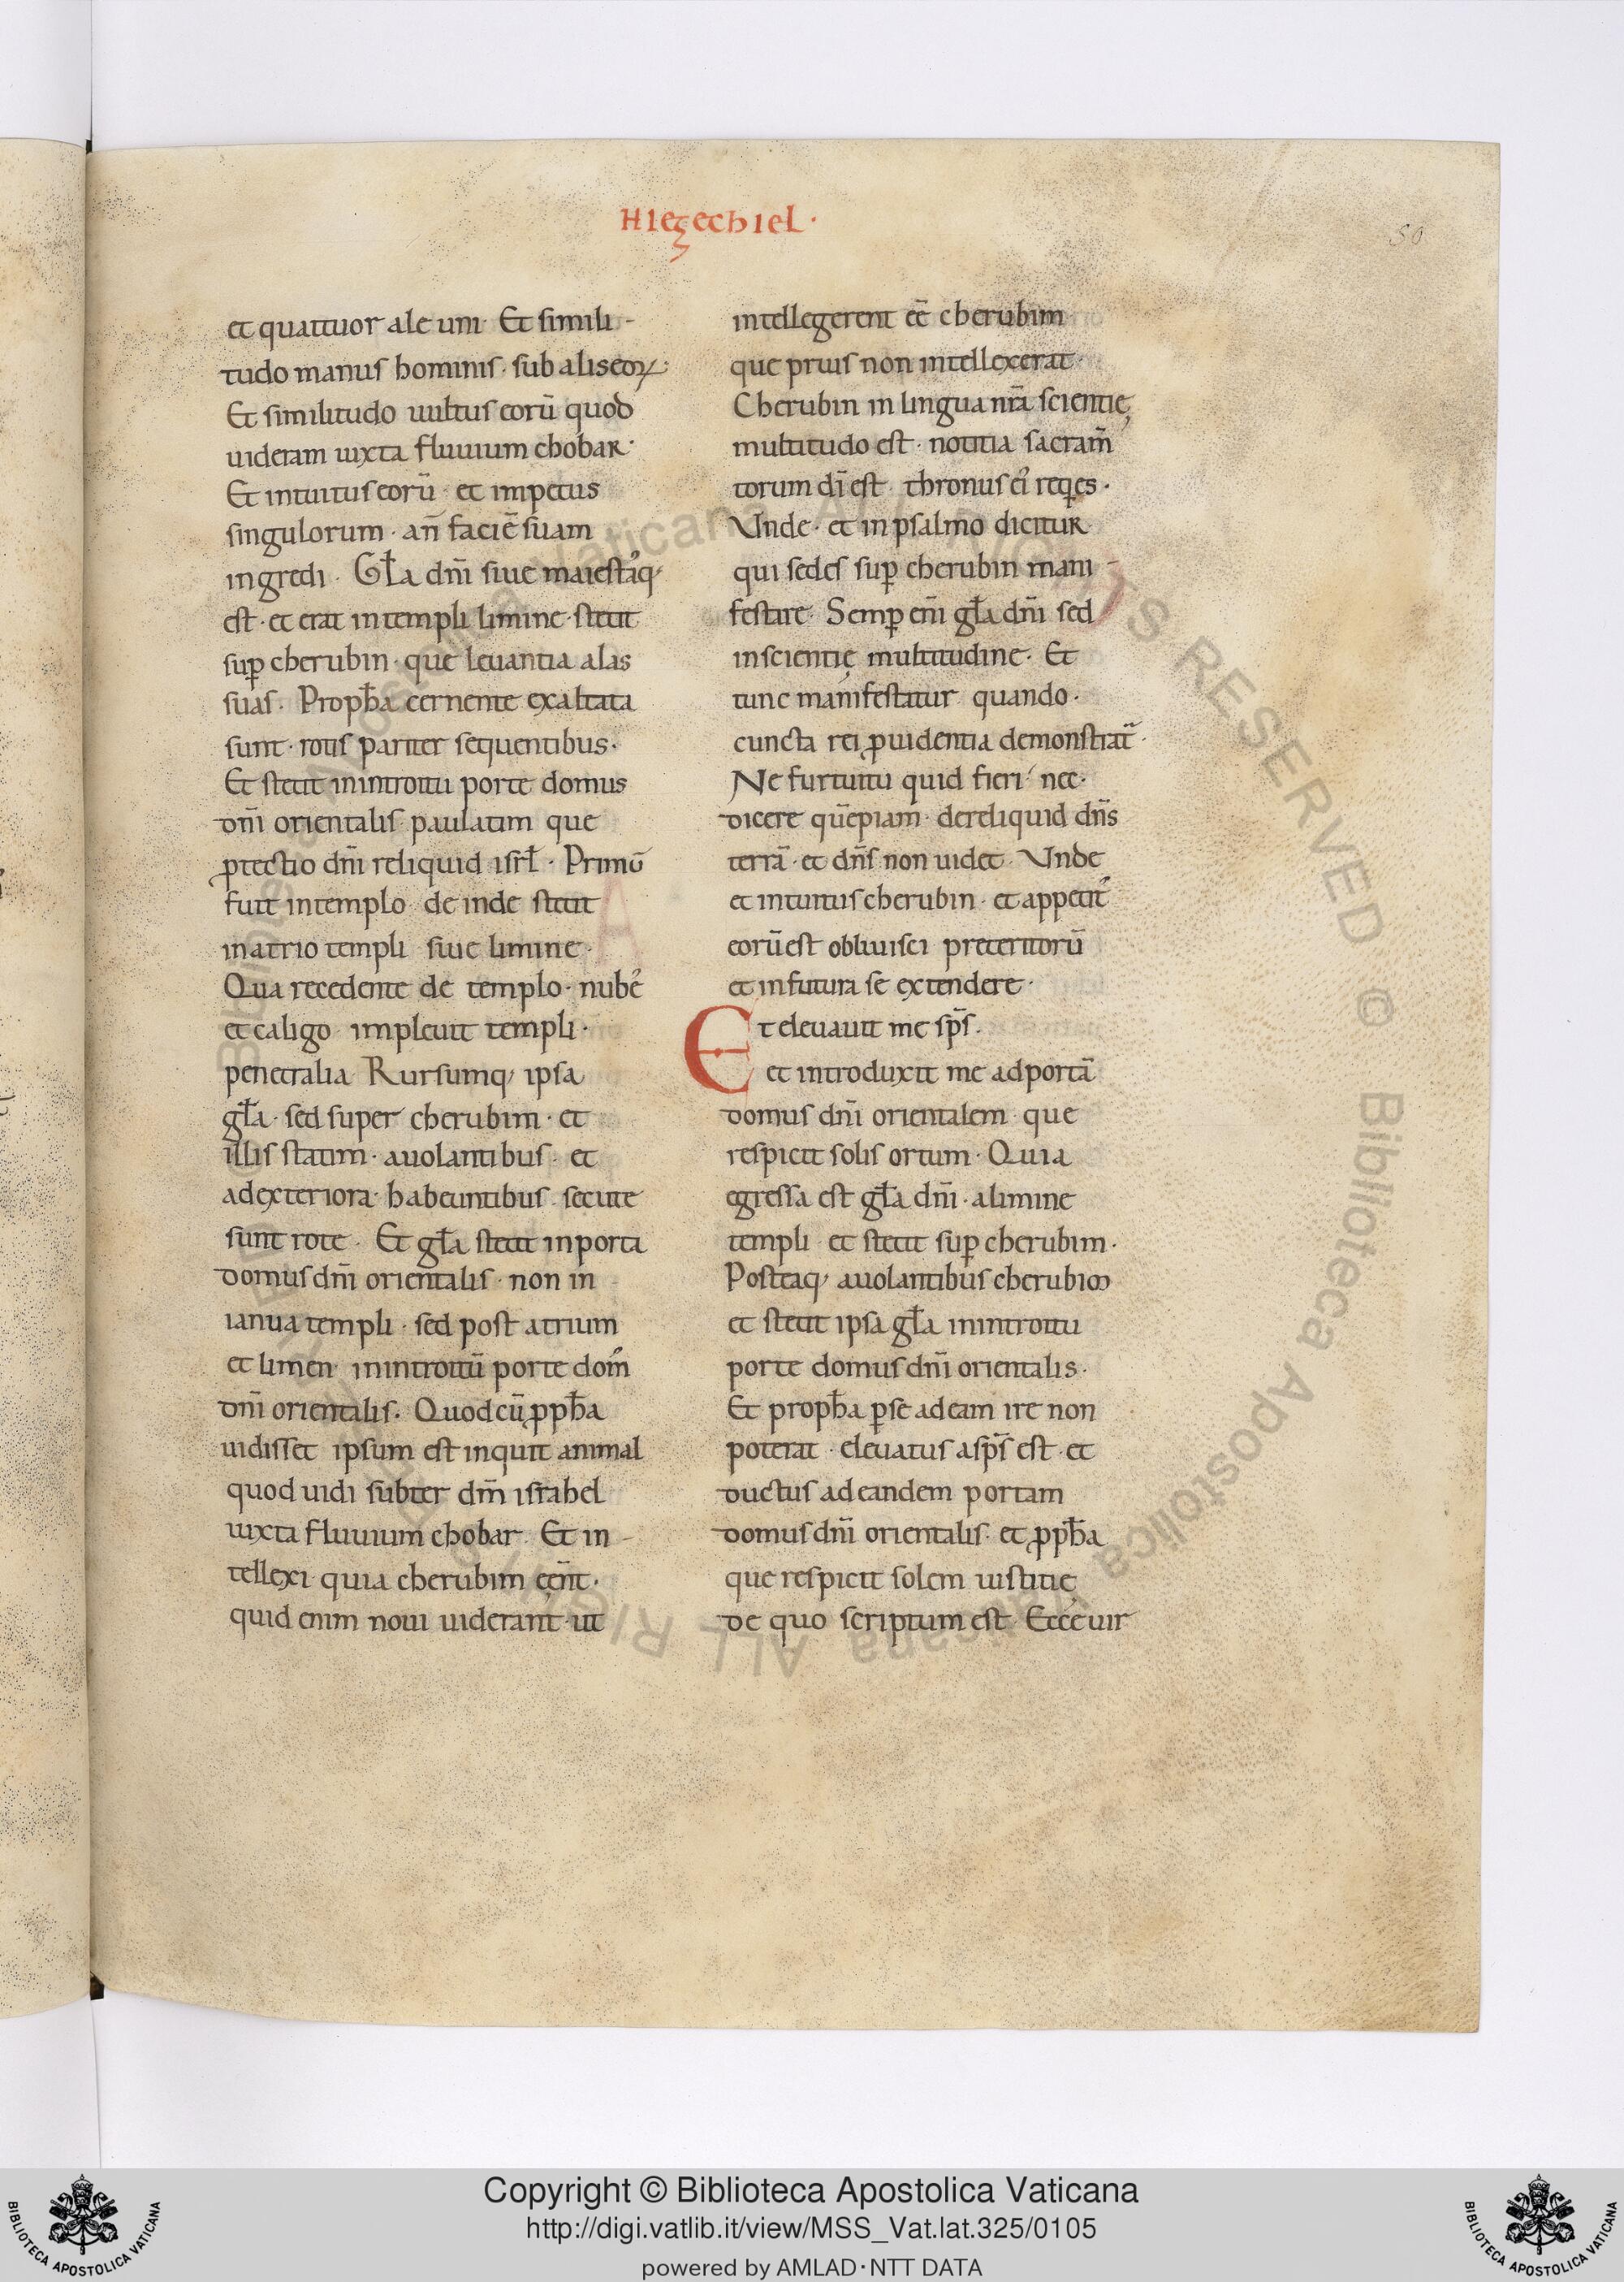 Hiezechiel·
50
et quattuor ale uni· Et simili-
tudo manus hominis· sub alis eoꝝ·
Et similitudo uultus eorū quod
uideram iuxta fluuium chobar·
Et intuitus eorū· et impetus
singulorum· añ faciē suam
ingredi· Gl̄a dn̄i siue maiestaꝰq;
est· et erat in templi limine· stetit
suꝑ cherubin· que leuantia alas
suas· Proph̄a cernente exaltata
sunt· rotis pariter sequentibus·
Et stetit in introitu porte domus
dn̄i orientalis· paulatim que
ꝓtectio dn̄i reliquid isrl̄· Primū
fuit in templo· de inde stetit
in atrio templi siue limine·
Qua recedente de templo· nubeꝰ
et caligo impleuit templi·
penetralia Rursumq; ipsa
gl̄a· sed super cherubim· et
illis statim· auolantibus· et
ad exteriora· habeuntibus· secute
sunt rote· Et gl̄a stetit in porta
domus dn̄i orientalis· non in
ianua templi· sed post atrium
et limen· in introitū porte domꝰ
dn̄i orientalis· Quod cū ꝓph̄a
uidisset ipsum est inquit animal
quod uidi subter dm̄ israhel
iuxta fluuium chobar· Et in-
tellexi quia cherubim eēnt·
quid enim noui uiderant· ut
intellegerent eē cherubim·
que prius non intellexerat·
Cherubin in lingua nr̄a scientię
multitudo est· notitia sacram̄
torum dī est· thronus eiꝰ reqes·
Vnde· et in psalmo dicitur
qui sedes suꝑ cherubin mani-
festare· Semꝑ eni gl̄a dn̄i sed
in scientię multitudine· Et
tunc manifestatur quando·
cuncta rei ꝓuidentia demonstrat̄·
Ne furtuitu quid fieri nec·
dicere quēpiam· dereliquid dn̄s
terrā· et dn̄s non uidet· Vnde
et intuitus cherubin· et appetitꝰ
eorū est obliuisci preteritorū
et in futura se extendere·
Et eleuauit me sps̄·
et introduxit me ad portā
domus dn̄i orientalem· que
respicit solis ortum· Quia
egressa est gl̄a dn̄i· a limine
templi· et stetit suꝑ cherubim·
Posteaq; auolantibus cherubim
et stetit ipsa gl̄a in introitu
porte domus dn̄i orientalis·
Et proph̄a ꝑse ad eam ire non
poterat· eleuatus a sps̄ est· et
ductus ad eandem portam
domus dn̄i orientalis· et ꝓph̄a
que respicit solem iustitię
de quo scriptum est Ecce uir
Copyright © Biblioteca Apostolica Vaticana
http://digi.vatlib.it/view/MSS_Vat.lat.325/0105
powered by AMLAD·NTT DATA
BIBLIOTECA APOSTOLICA VATICANA
BIBLIOTECA APOSTOLICA VATICANA